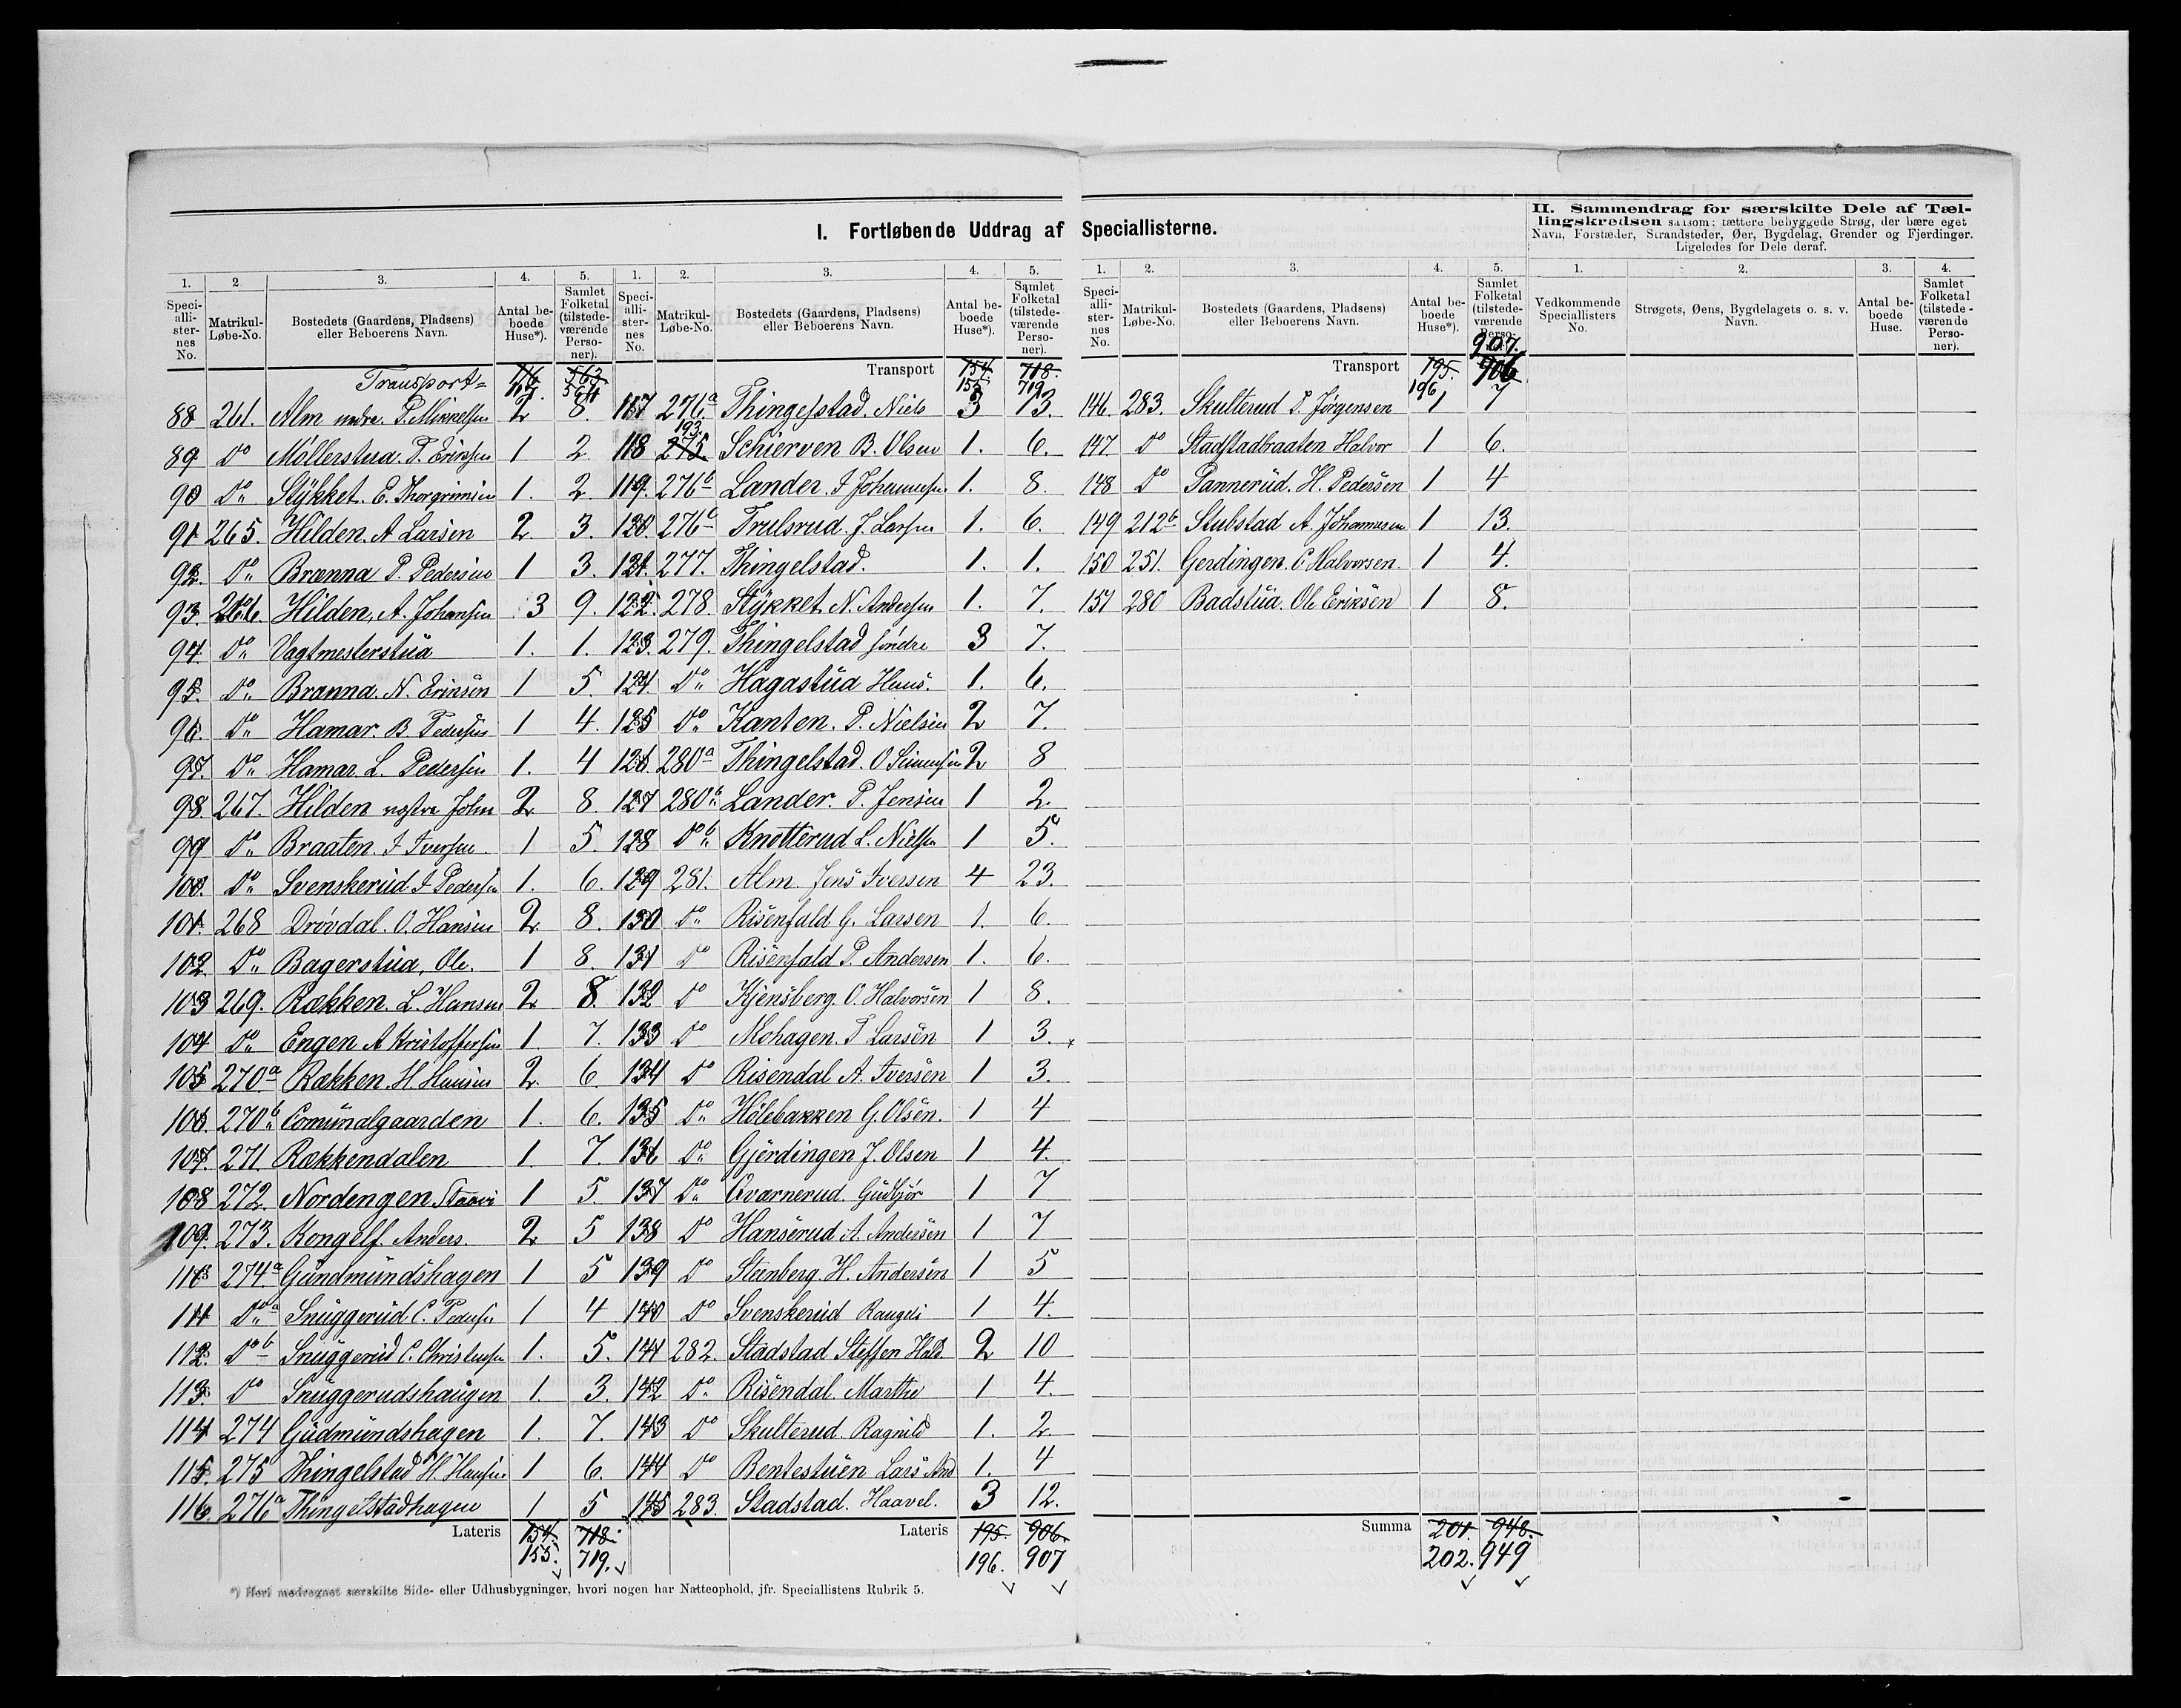 I. Fortløbende Uddrag af Speciallisterne.
II. Sammendrag for særskilte Dele af Tæl-
lingskredsen saasom: tættere bebyggede Strøg, der bære eget
Navn, Forstæder, Strandsteder, Øer, Bygdelag, Grender og Fjerdinger.
Ligeledes for Dele deraf.
1. 2. 3. 4. 5.
Speci-alli-ster-nes No. Matrikul-Løbe-No. Bostedets (Gaardens, Pladsens) eller Beboerens Navn. Antal be-boede Huse*). Samlet Folketal (tilstede-værende Perso-ner).
Transport= 116 563
117. 564
88 261. Alm nedre. P. Mikkelsen 2 8.
89 Do Möllerstua. P. Eriksen 1 2.
90 Do Stykket. E. Thorgrimsen 1. 2.
91 265. Hilden. A Larsen 2. 3.
92. Do Brænna P. Pedersen 1 3.
93. 266. Hilden, A. Johansen 3 9.
94. Do Vagtmesterstua 1. 1.
95. Do Brænna. N. Eriksen 1 5.
96. Do Hamar. B. Pedersen 1 4.
97. Do Hamar L. Pedersen 1. 4
98 267. Hilden vestre John 2 8
99 Do Braaten. I Iversen 1 5.
100. Do Svenskerud I Pedersen 1. 6.
101. 268 Drøvdal. O. Hansen 2 8.
102. Do Bagerstua, Ole. 1 8.
103 269. Rækken. L. Hansen 2 8.
104 Do Engen A Kristoffersen 1. 7.
105 270a Rækken. H. Hansen 2. 6
106. 270b Comunalgaarden 1. 6.
107. 271. Rækkendalen 1. 7.
108 272. Nordengen 1 5.
109. 273. Kongelf Anders. 2 5
110 274a Gundmundshagen 1 5
111 Do a Snuggerud C. Pedersen 1 4
112. Do b Snuggerud C. Christensen 1. 5.
113. Do Snuggerudshaugen 1. 3.
114 274 Gudmundshagen 1. 7.
115. 275 Thingelstad H. Hansen 1 6.
116. 276a Thingelstadhagen 1 5
Lateris 154 718.
155. 719.
1. 2. 3. 4. 5.
Speci-alli-ster-nes No. Matrikul-Løbe-No. Bostedets (Gaardens, Pladsens) eller Beboerens Navn. Antal be-boede Huse*). Samlet Folketal (tilstede-værende Perso-ner).
Transport 154. 718.
155 719
117 276a Thingelstad. Niels 3 13.
193.
118 275. Schierven B. Olsen 1. 6.
119. 276b Lander. I Johannesen 1. 8.
120. 276c Trulsrud. J. Larsen 1. 6.
121. 277. Thingelstad. 1. 1.
122. 278. Stykket. N. Andersen 1. 7.
123. 279. Thingelstad søndre 3 7.
124. Do Hagastua Hans. 1. 6.
125 Do Kanten. P. Nielsen 2 7.
126. 280a Thingelstad. O Simensen 2 8
127 280b Lander. P. Jensen 1 2.
128 Do b Knotterud L. Nielsen 1 5.
129 281. Alm. Jens Iversen 4 23.
130 Do Risenfald G. Larsen 1. 6.
131 Do Risenfald P. Andersen 1. 6.
132 Do Kjensberg O. Halvorsen 1 8.
133 Do Mohagen. P Larsen 1 3.
134 Do Risendal A. Iversen 1 3.
135 Do Holebakken G. Olsen. 1 4
136 Do Gjerdingen J. Olsen 1 4.
137 Do Qvarnerud. Gudbjør 1 7
138 Do Hanserud A. Andersen 1 7
139 Do Steenberg. H. Andersen 1 5
140 Do Svenskerud 1 4.
141 282. Stadstad Steffen Hald. 2 10
142 Do Risendal. Marthe 1 4.
143 Do Skulterud. Ragnild 1. 2.
144 Do Bentestuen Lars And 1. 4
145 283. Stadstad. Haavel. 3 12.
Lateris 195. 906.
196. 907
1. 2. 3. 4. 5.
Speci-alli-ster-nes No. Matrikul-Løbe-No. Bostedets (Gaardens, Pladsens) eller Beboerens Navn. Antal be-boede Huse*). Samlet Folketal (tilstede-værende Perso-ner).
907.
Transport 195. 906
196
146. 283. Skulterud P. Jørgensen 1 7
147. Do Stadstadbraaten Halvor 1 6.
148 Do Pannerud. H. Pedersen 1 4
149 212b Stubstad A. Johannesen 1 13.
150 251. Gerdingen. C Halvorsen. 1 4.
151 280 Badstua. Ole Eriksen 1 8.
Summa 201. 948.
202. 949
1. 2. 3. 4.
Vedkommende Speciallisters No. Strøgets, Øens, Bygdelagets o. s. v. Navn. Antal be-boede Huse. Samlet Folketal (tilstede-værende Perso-ner).
*) Heri medregnet særskilte Side- eller Udhusbygninger, hvori nogen har Natteophold, jfr. Speciallistens Rubrik 5.